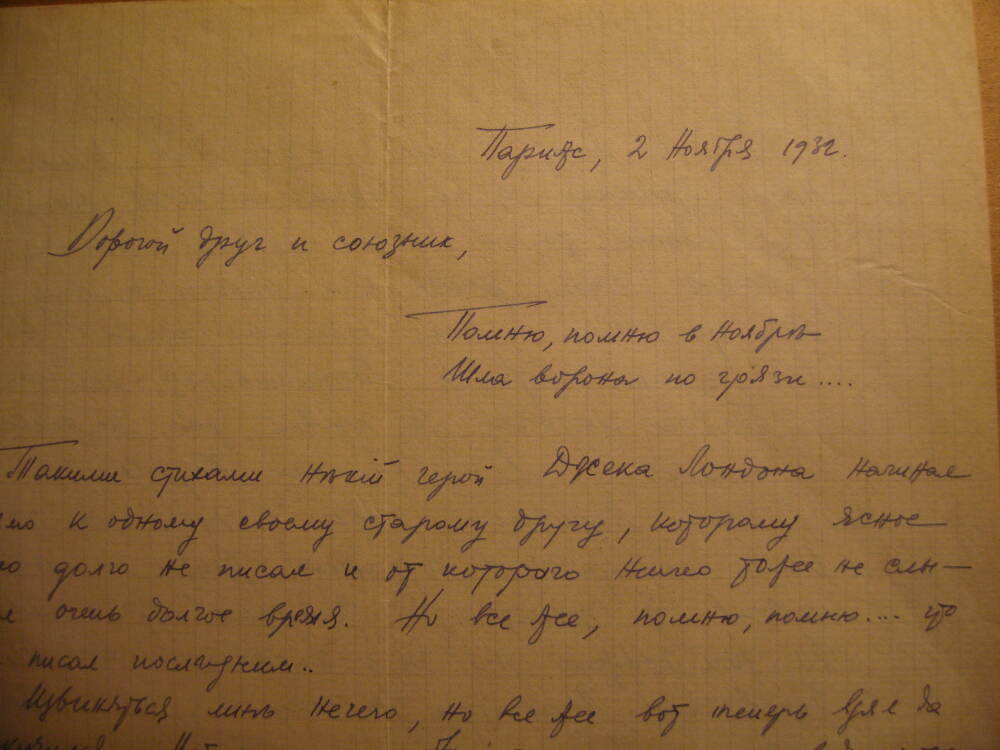 Париж, 2 Ноября 1932.
Дорогой друг и союзник,
Помню, помню в Ноябрѣ
Шла ворона по грязи....
Такими стихами нѣкій герой Джека Лондона начинае
мо к одному своему старому другу, которому ясное
го долго не писал и от котораго ничего тоже не слы-
л очень долгое время. Но все же, помню, помню.... что
писал послѣдним..
Извиняться мнѣ нечего, но все же вот теперь уже да